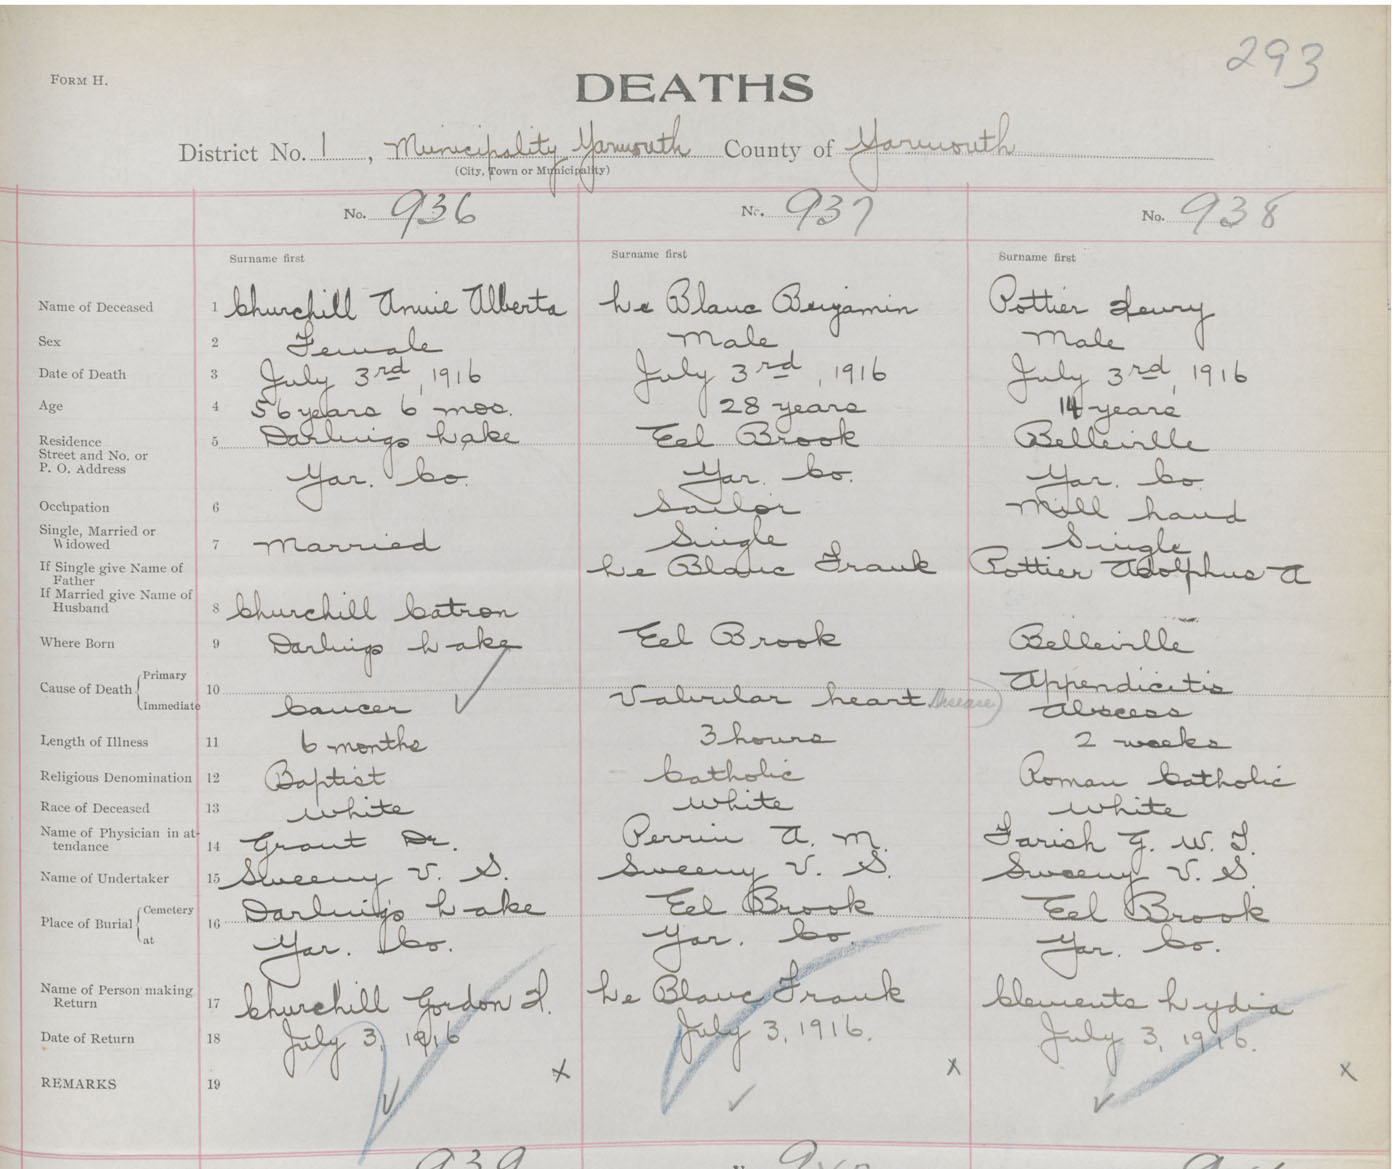 293
FORM H.
DEATHS
District No. 1, Municipality Yarmouth County of Yarmouth
(City, Town or Municipality)
No. 936 No. 937 No. 938
Surname first Surname first Surname first
Name of Deceased 1 Churchill Annie Alberta Le Blanc Benjamin Pottier Henry
Sex 2 Female Male Male
Date of Death 3 July 3rd, 1916 July 3rd, 1916 July 3rd, 1916
Age 4 56 years 6 mos. 28 years 14 years
Residence 5 Darlings Lake Eel Brook Belleville
Street and No. or
P. O. Address Yar. Co. Yar. Co. Yar. Co.
Occupation 6 Sailor Mill hand
Single, Married or
Widowed 7 Married Single Single
If Single give Name of
Father Le Blanc Frank Pottier Adolphus A
If Married give Name of
Husband 8 Churchill Catron
Where Born 9 Darlings Lake Eel Brook Belleville
Cause of Death Primary 10 Appendicitis
Immediate Cancer Valvular heart Disease) Abscess
Length of Illness 11 6 months 3 hours 2 weeks
Religious Denomination 12 Baptist Catholic Roman Catholic
Race of Deceased 13 White White White
Name of Physician in at-
tendance 14 Grant Dr. Perrin A. M. Farish G. W. T.
Name of Undertaker 15 Sweeny V. S. Sweeny V. S. Sweeny V. S.
Place of Burial Cemetery 16 Darling's Lake Eel Brook Eel Brook
at Yar. Co. Yar. Co. Yar. Co.
Name of Person making
Return 17 Churchill Gordon H. Le Blanc Frank Clements Lydia
Date of Return 18 July 3, 1916 July 3, 1916. July 3, 1916.
REMARKS 19 x x x
939